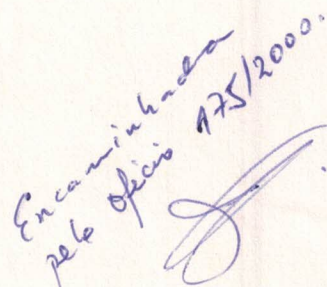 Encaminhada
pelo ofício 175/2000.